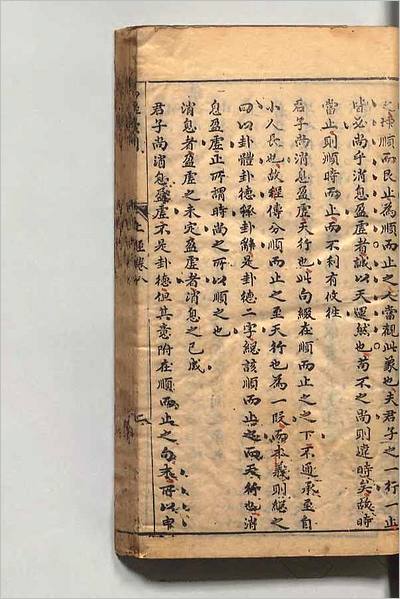 之坤順而艮止為順而止之大當觀此象也夫君子之一行一止
皆必尚乎消息盈虛者誠以天運然也苟不之尚則違時矣故時
當止則順時而止而不利有攸往
君子尚消息盈虛天行也此句綴在順而止之之下不通承至自
小人長也故程傳分順而止之至天行也為一段而本義則總之
曰以卦體卦德釋卦辭是卦德二字總該順而止之而天行也消
息盈虛正所謂時尚之所以順之也
消息者盈虛之未定盈虛者消息之已成
君子尚消息盈虛不是卦德但其意附在順而止之句本所以申
上經卷八